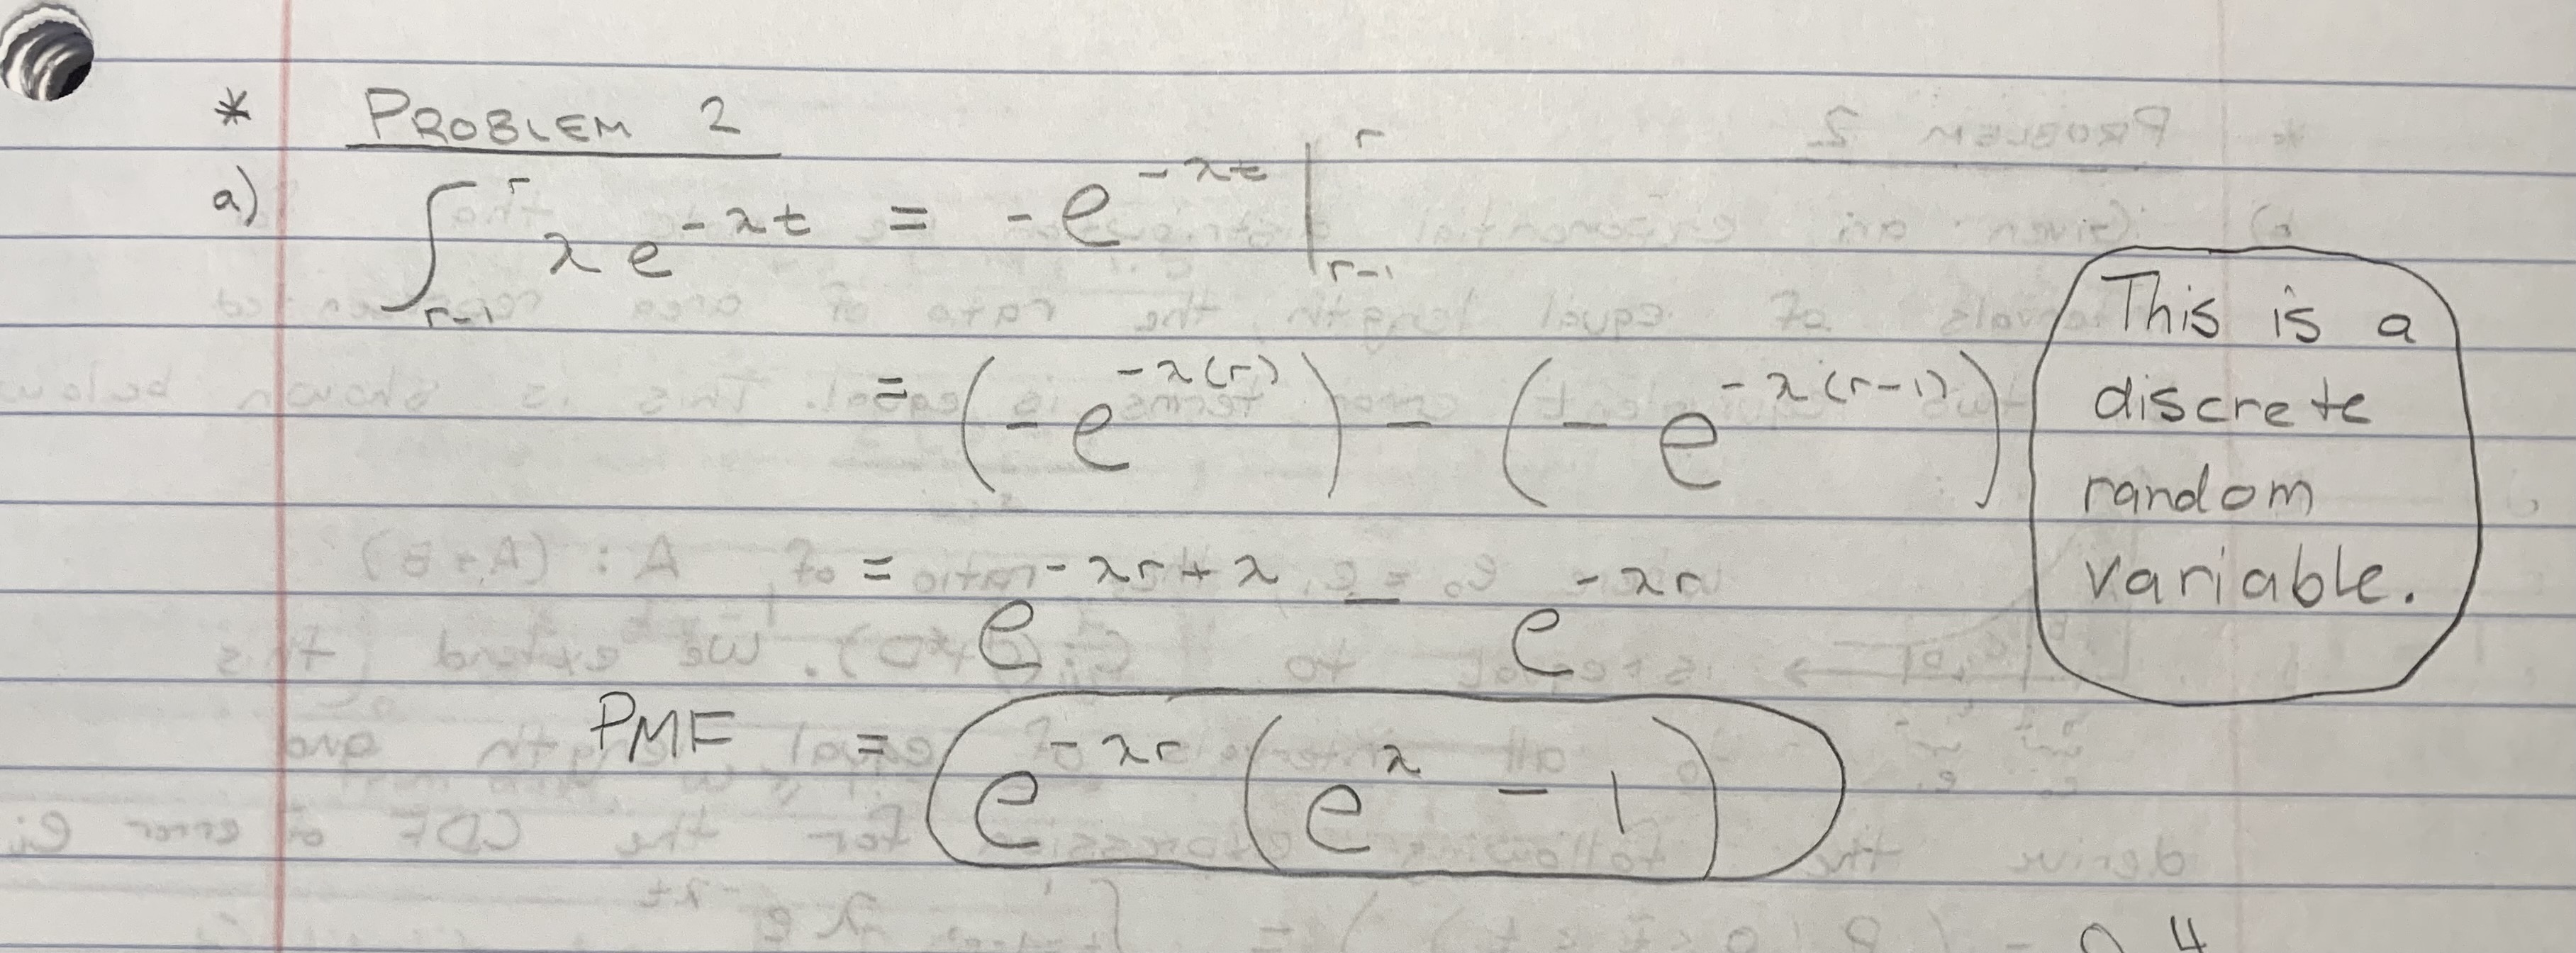 * PROBLEM 2
a) ∫_{r-1}^{r} λe^{-λt} = -e^{-λt} |_{r-1}^{r}
= (-e^{-λ(r)}) - (-e^{-λ(r-1)})
= e^{-λr+λ} - e^{-λr}
PMF = e^{-λr}(e^{λ} - 1)
This is a
discrete
random
variable.